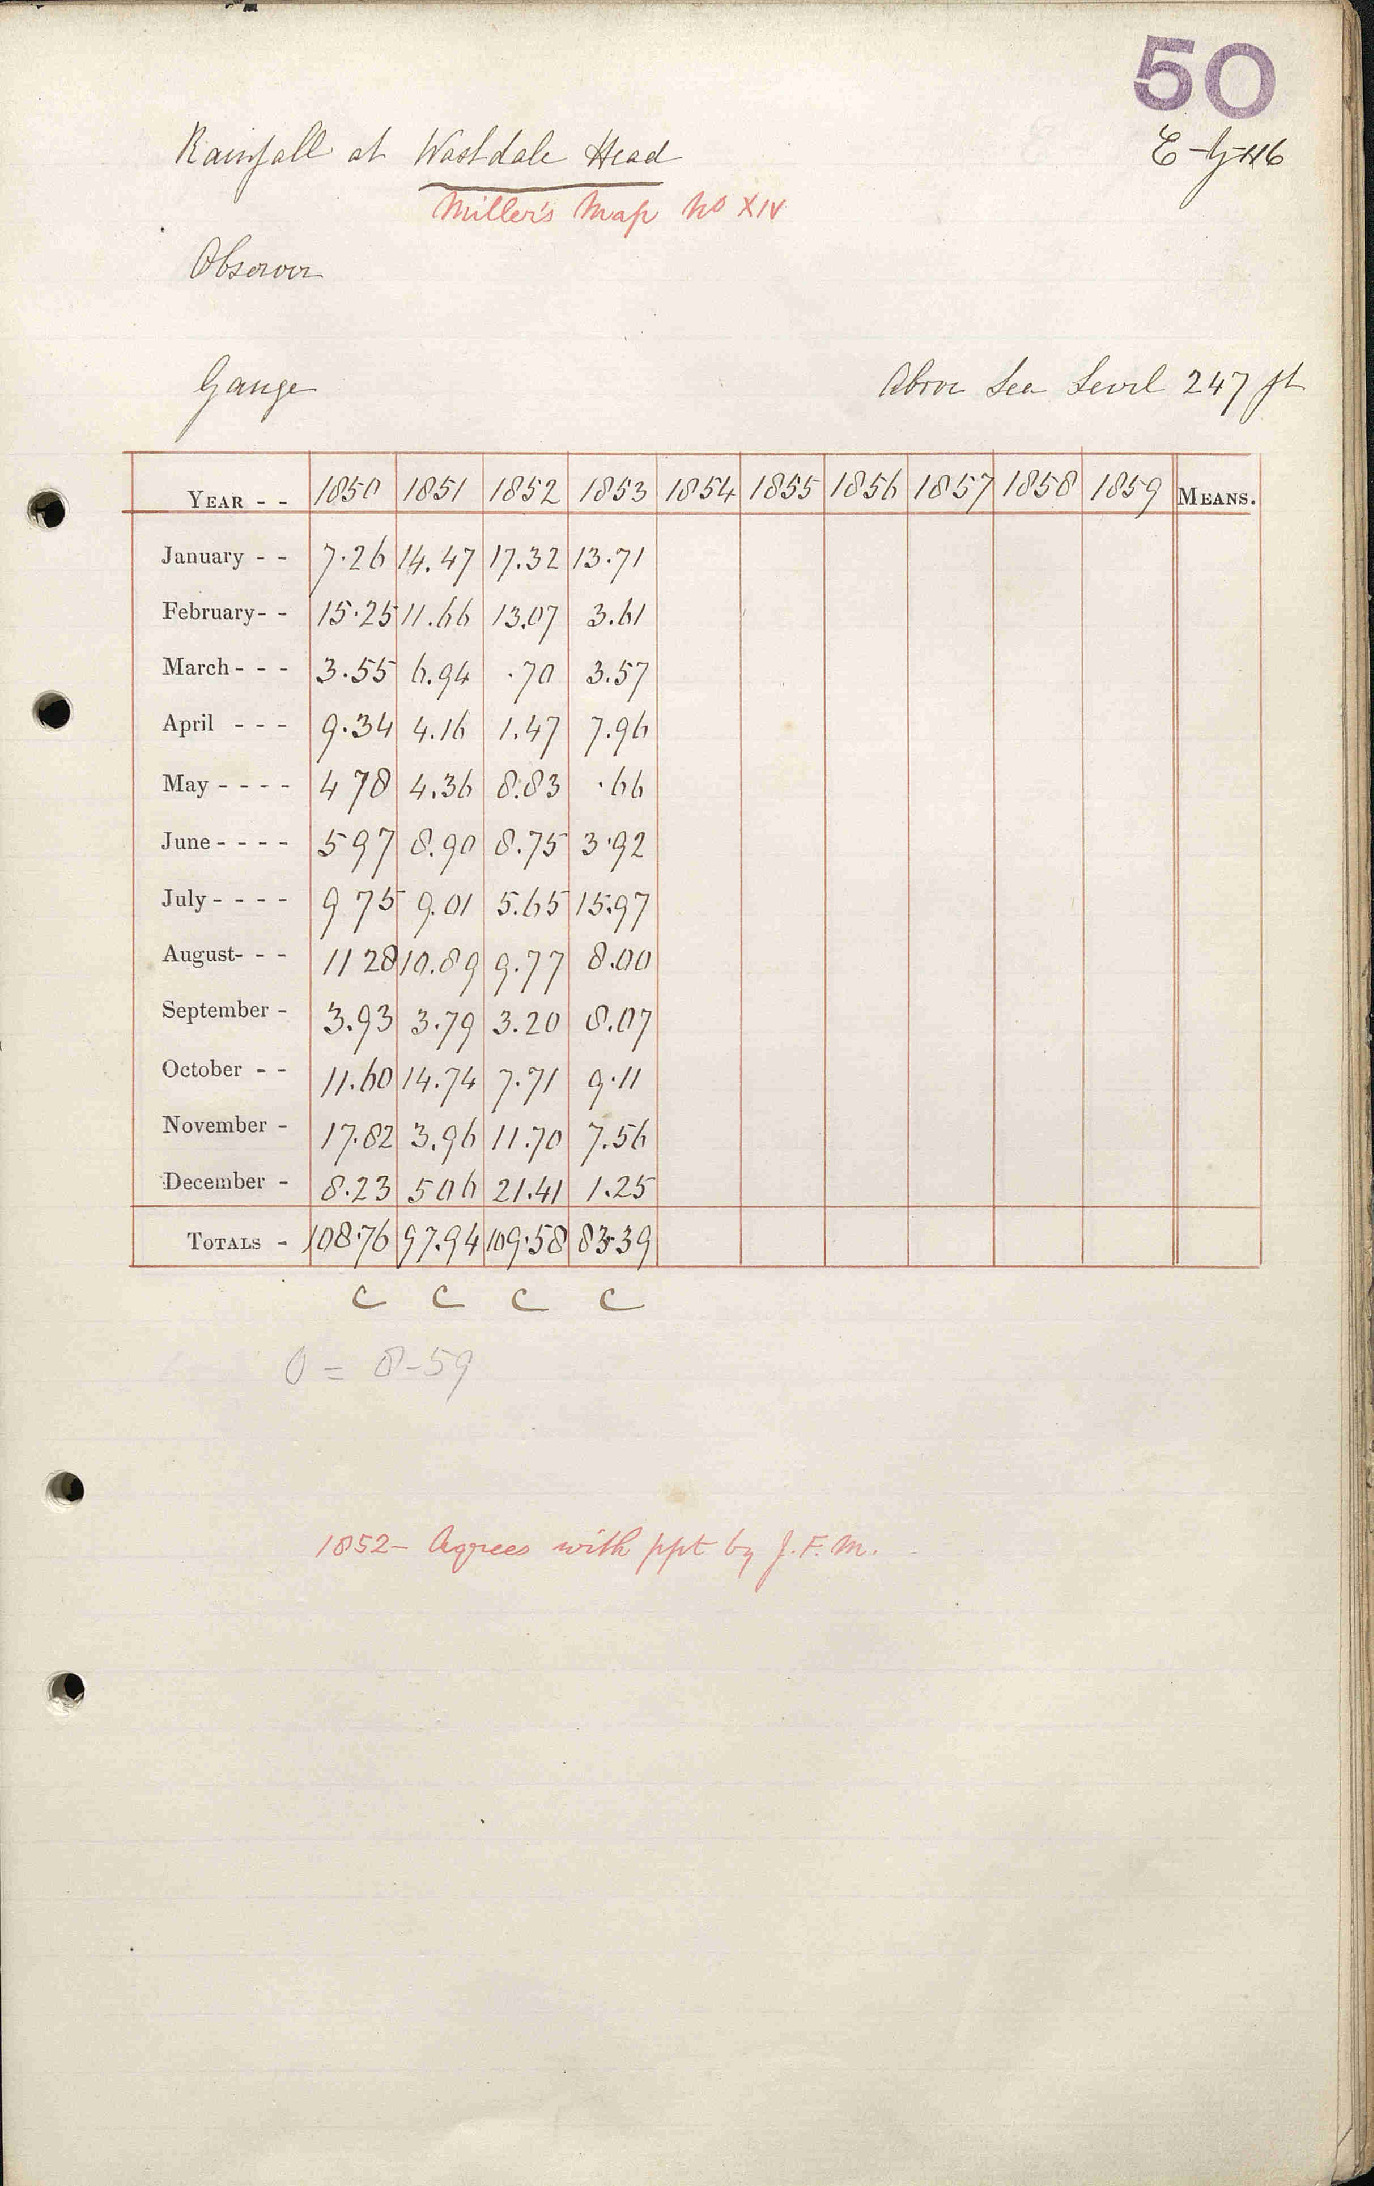 50
Rainfall at Wastdale Head
Miller's Map No XIV
Observer
Gauge Above Sea Level 247 ft
YEAR - - 1850 1851 1852 1853 1854 1855 1856 1857 1858 1859 MEANS.
January - - 7.26 14.47 17.32 13.71
February - - 15.25 11.66 13.07 3.61
March - - - 3.55 6.94 .70 3.57
April - - - 9.34 4.16 1.47 7.96
May - - - - 4 78 4.36 8.83 .66
June - - - - 5 97 8.90 8.75 3.92
July - - - - 9 75 9.01 5.65 15.97
August - - - 11 28 10.89 9.77 8.00
September - 3.93 3.79 3.20 8.07
October - - 11.60 14.74 7.71 9.11
November - 17.82 3.96 11.70 7.56
December - 8.23 5 06 21.41 1.25
TOTALS - 108.76 97.94 109.58 83.39
C C C C
0 = 8-59
1852- Agrees with ppt by J.F.M.